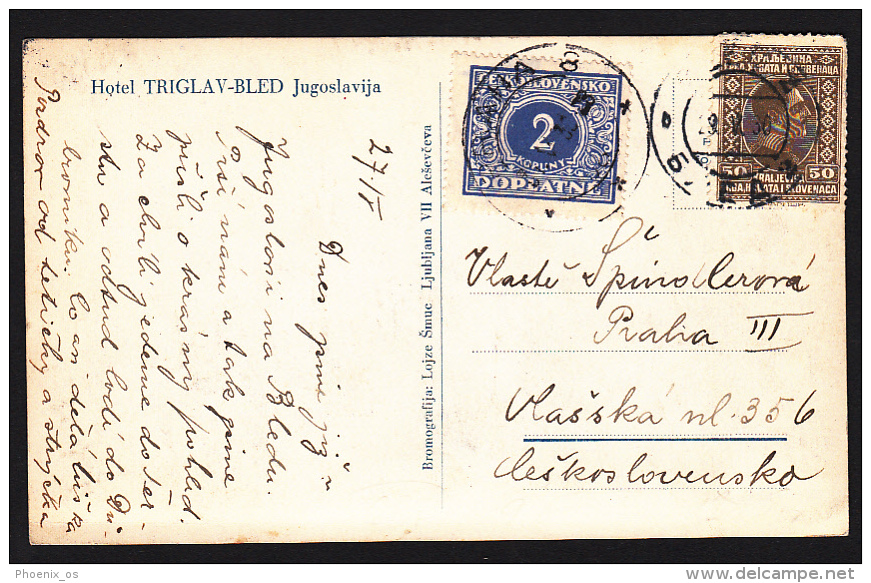 Hotel TRIGLAV-BLED Jugoslavija
27/V
Dnes jsme již v
Jugoslavii na Bledu.
prší nám a tak jsme
přišli o krásný pohled.
Za chvíli jedeme do Ter-
stu a odtud lodí do Du-
brovníku. Co asi dělá
Pozdrav od tetičky a strýčka
Bromografija: Lojze Šmuc Ljubljana VII Aleševčeva
ČESKOSLOVENSKO
2
KORUNY
DOPLATNÉ
PRAHA
КРАЉЕВИНА
СРБА, ХРВАТА И СЛОВЕНАЦА
50 50
KRALJEVINA
SRBA, HRVATA I SLOVENACA
Vlastě Špindlerová
Praha III
Vlašská ul. 356
Československo
Phoenix_os
www.delcampe.net